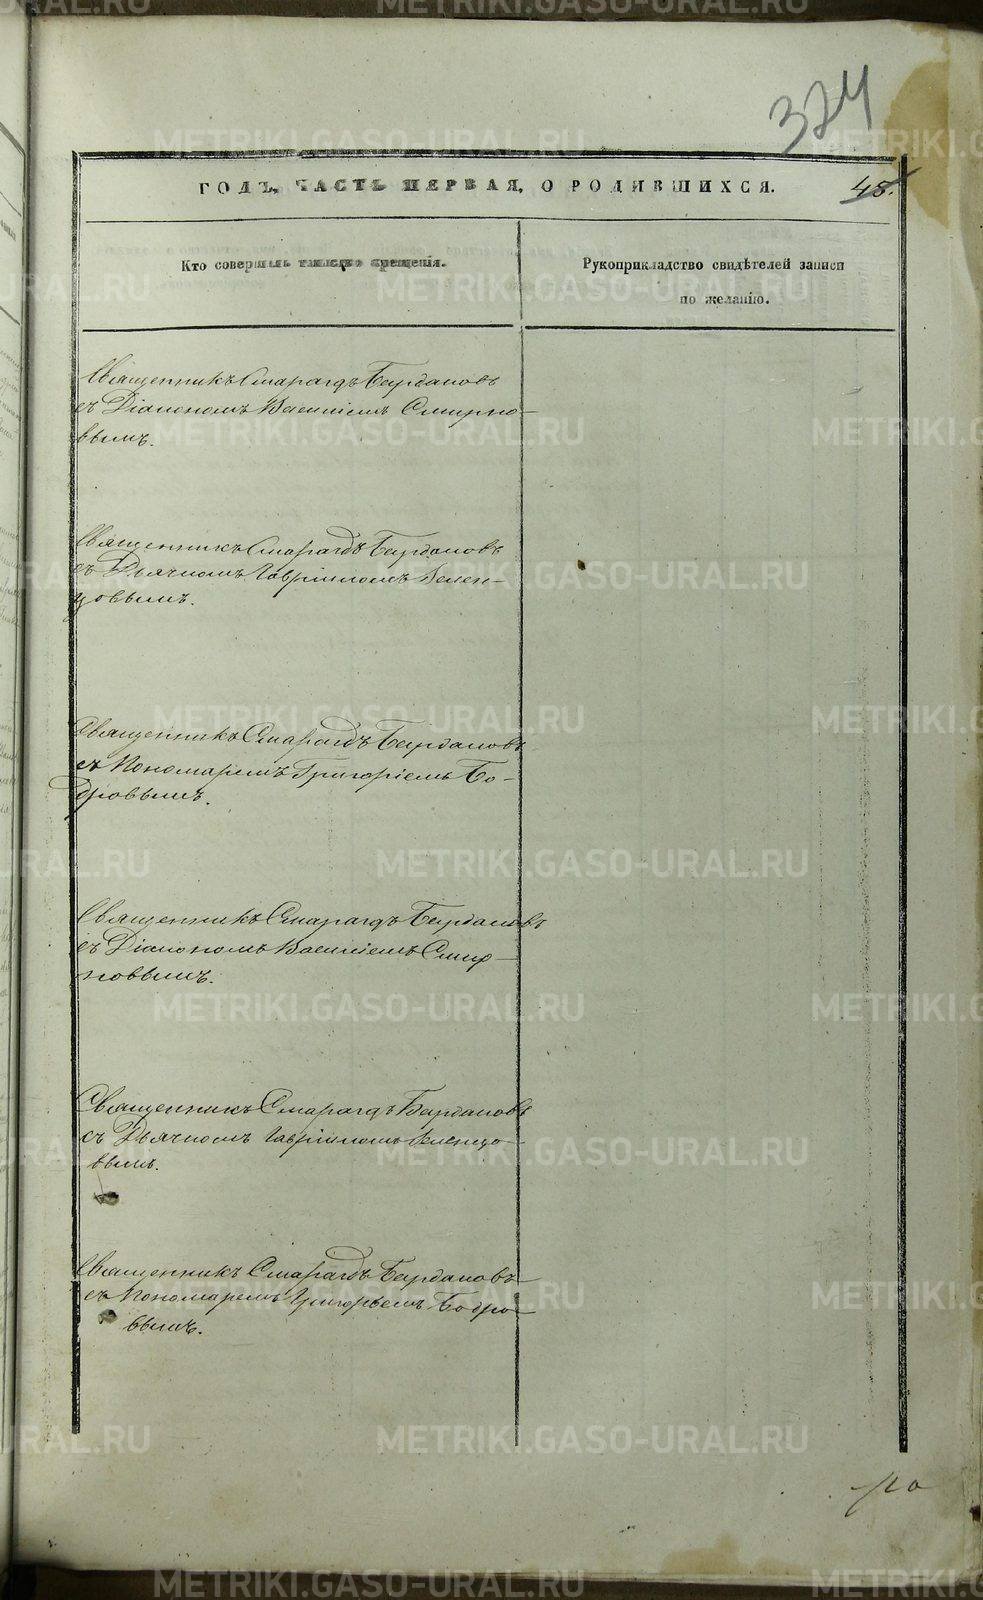 324
ГОДЪ, ЧАСТЬ ПЕРВАЯ, О РОДИВШИХСЯ.
48.
Кто совершалъ таинство крещенія.
Рукоприкладство свидѣтелей записи
по желанію.
Священникъ Смарагдъ Бирдановъ
съ Діакономъ Василіемъ Смирно-
вымъ.
Священникъ Смарагдъ Бирдановъ
съ Дьячкомъ Гавріиломъ Зелен-
цовымъ.
Священникъ Смарагдъ Бирдановъ
съ Пономаремъ Григоріемъ Бо-
дровымъ.
Священникъ Смарагдъ Бирдановъ
съ Діакономъ Василіемъ Смир-
новымъ.
Священникъ Смарагдъ Бирдановъ
съ Дьячкомъ Гавріиломъ Зеленцо-
вымъ.
Священникъ Смарагдъ Бирдановъ
съ Пономаремъ Григорьемъ Бодро-
вымъ.
METRIKI.GASO-URAL.RU